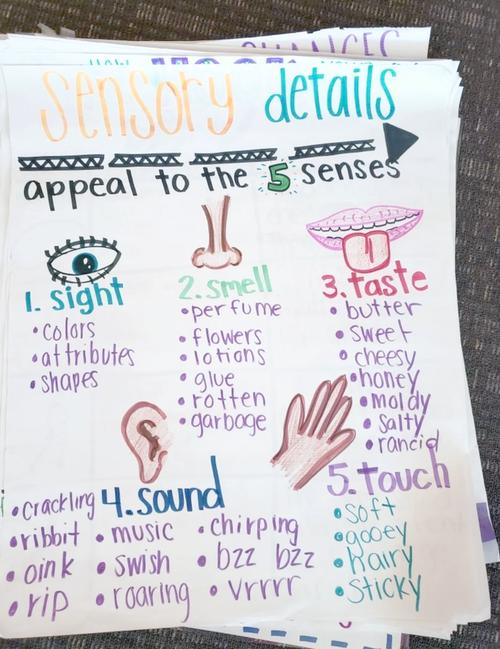 CHANGES
sensory details
appeal to the 5 senses
1. sight
• colors
• attributes
• shapes
2. smell
• perfume
• flowers
• lotions
• glue
• rotten
• garbage
3. taste
• butter
• sweet
• cheesy
• honey
• moldy
• salty
• rancid
4. sound
• crackling
• ribbit
• oink
• rip
• music
• swish
• roaring
• chirping
• bzz bzz
• vrrrr
5. touch
• soft
• gooey
• hairy
• sticky